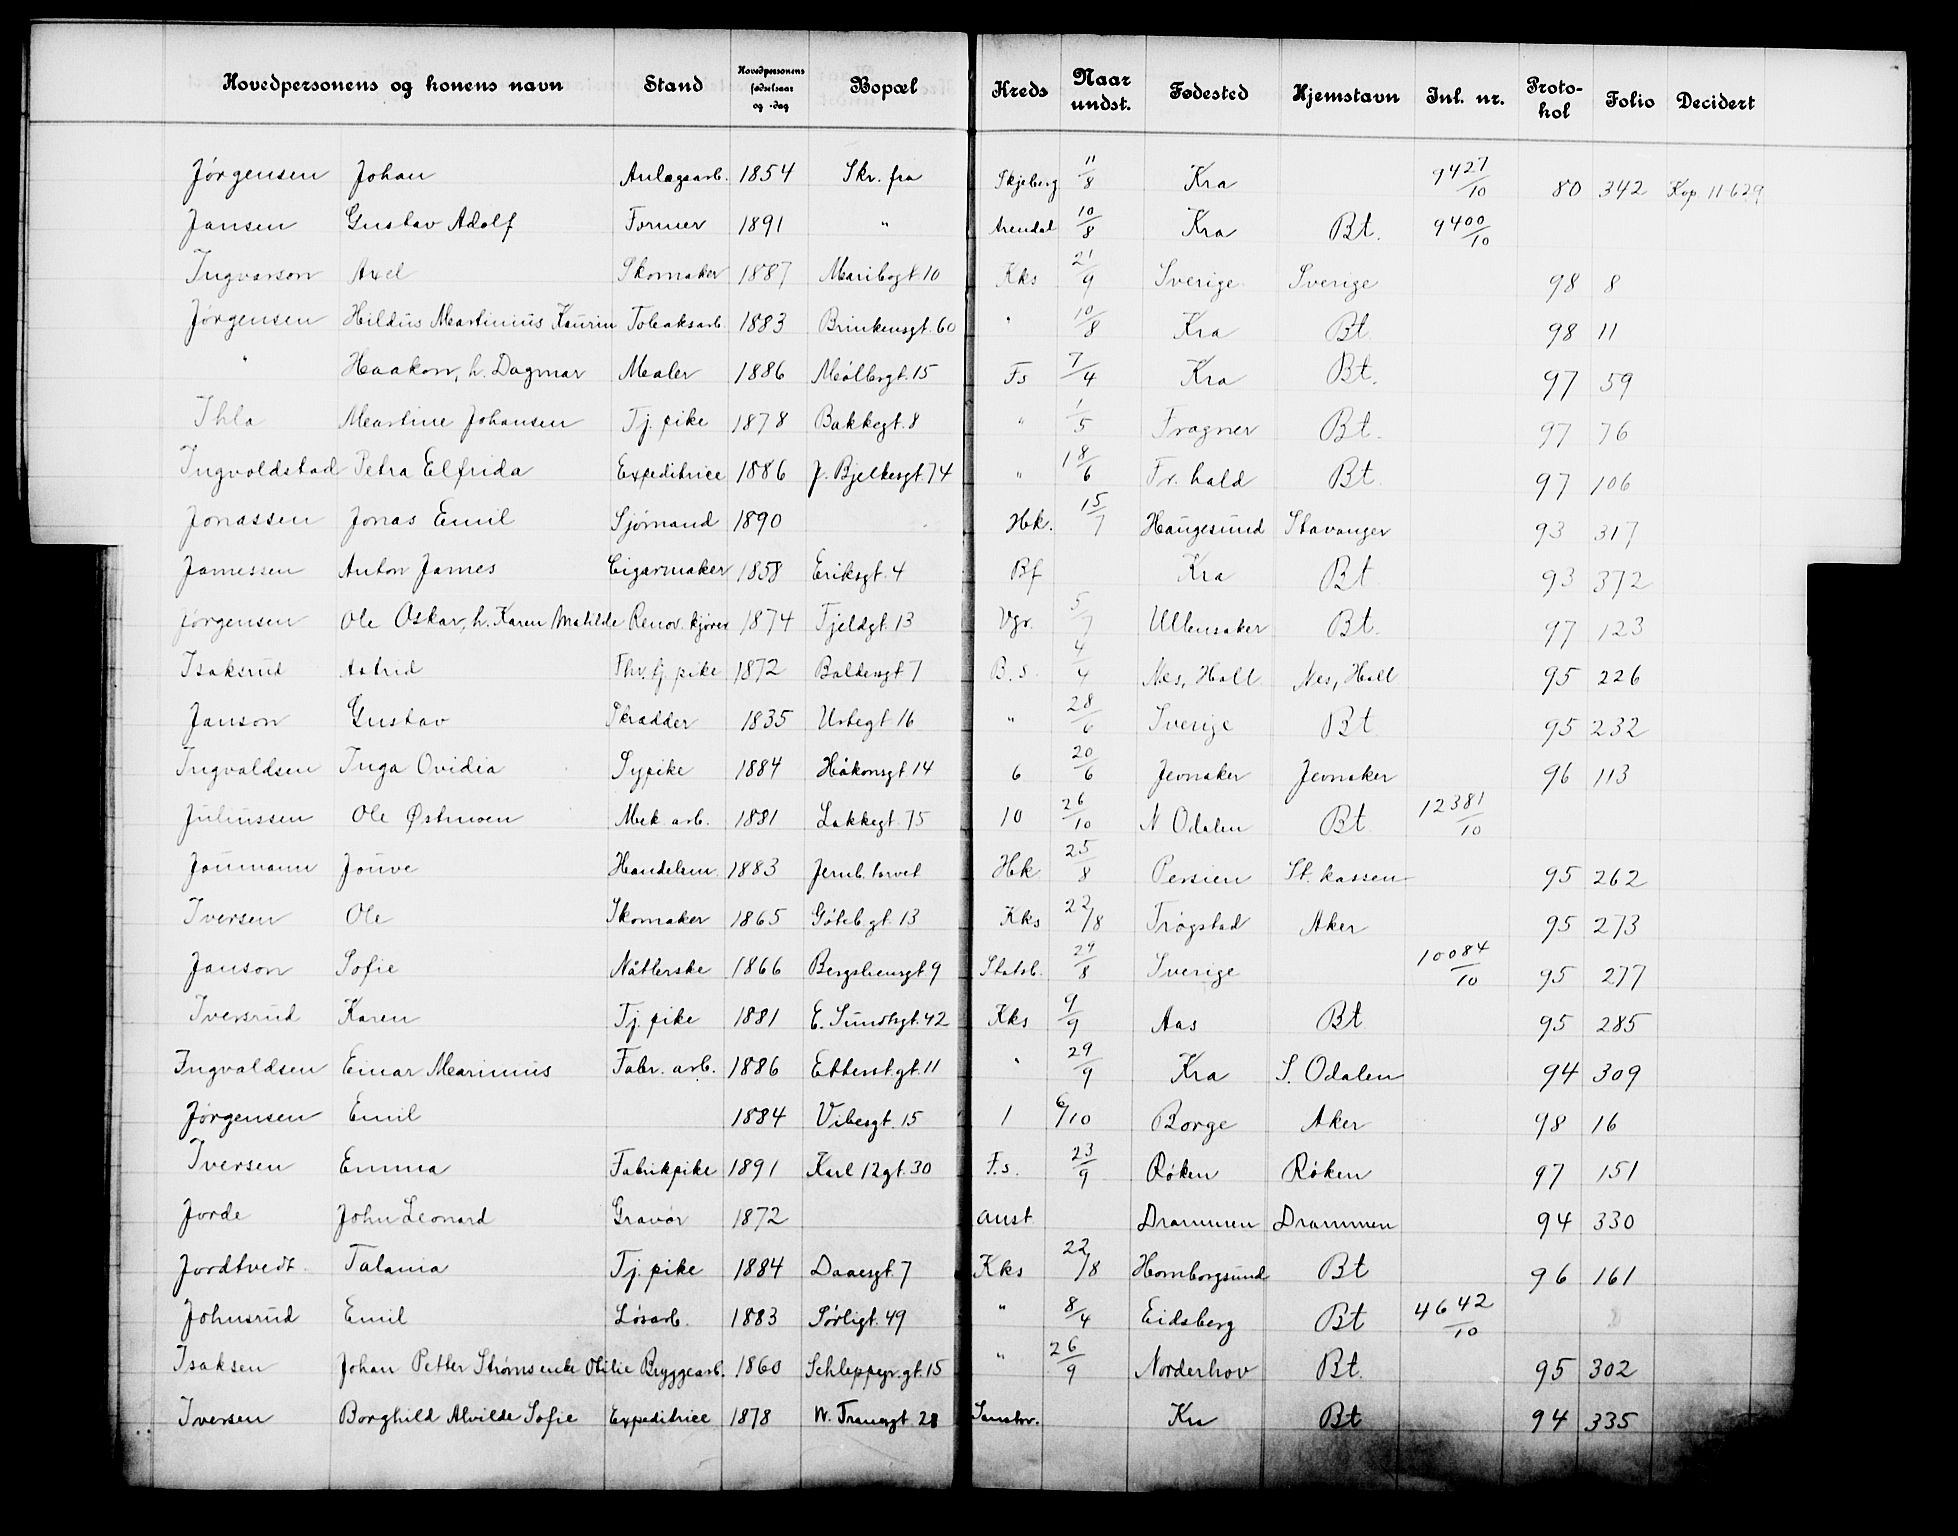 Hovedpersonens og konens navn Stand Hovedpersonens fødselsaar og -dag Bopæl Kreds Naar undst. Fødested Hjemstavn Inl. nr. Proto-kol Folio Decidert
Jørgensen Johan Anlægsarb. 1854 Skr. fra Skjeberg 11/8 Kra 9427/10 80 342 Kop. 11-629
Jansen Gustav Adolf Former 1891 " Arendal 10/8 Kra Bt. 9400/10
Ingvarson Axel Skomaker 1887 Maribogt. 10 Kks 21/9 Sverige Sverige 98 8
Jørgensen Hildus Martinius Kaurin Tobaksarb. 1883 Brinkensgt. 60 " 10/8 Kra Bt 98 11
" Haakon, h. Dagmar Maler 1886 Møllergt. 15 Fs 7/4 Kra Bt. 97 59
Ihla Martine Johansen Tj. pike 1878 Bakkegt. 8 " 1/5 Fragner Bt. 97 76
Ingvoldstad Petra Elfrida Expeditrice 1886 J. Bjelkesgt. 74 " 18/6 Fr. hald Bt. 97 106
Jonassen Jonas Emil Sjømand 1890 Hk. 15/7 Haugesund Stavanger 93 317
Jamessen Anton James Cigarmaker 1858 Eriksgt. 4 Bf Kra Bt 93 372
Jørgensen Ole Oskar, h. Karen Matilde Renov. kjører 1874 Fjeldgt. 13 Vgr. 5/7 Ullensaker Bt. 97 123
Isaksrud Astrid Fhv. tj. pike 1872 Baldersgt. 7 B.s. 4/4 Nes, Hall. Nes, Hall 95 226
Janson Gustav Skrædder 1835 Urtegt. 16 " 28/6 Sverige Bt 95 232
Ingvaldsen Inga Ovidia Sypike 1884 Håkonsgt. 14 6 20/6 Jevnaker Jevnaker 96 113
Juliussen Ole Østmoen Mek. arb. 1881 Lakkegt. 75 10 26/10 N Odalen Bt 12381/10
Joumann Jouve Handelsm. 1883 Jernb. torvet Hk 25/8 Persien St. kassen 95 262
Iversen Ole Skomaker 1865 Gøteb.gt. 13 Kks 22/8 Trøgstad Aker 95 273
Janson Sofie Nåtlerske 1866 Bergsliensgt. 9 Statsb. 29/8 Sverige 10084/10 95 277
Iversrud Karen Tj. pike 1881 E. Sundtsgt. 42 Kks 9/9 Aas Bt 95 285
Ingvaldsen Einar Marinius Fabr. arb. 1886 Etterst.gt. 11 " 29/9 Kra S. Odalen 94 309
Jørgensen Emil 1884 Vibesgt. 15 1 6/10 Borge Aker 98 16
Iversen Emma Fabrikpike 1891 Karl 12gt. 30 F.s. 23/9 Røken Røken 97 151
Jorde John Leonard Gravør 1872 anst Drammen Drammen 94 330
Jordtvedt Talania Tj. pike 1884 Daaesgt. 7 Kks 22/8 Homborgsund Bt 96 161
Johnsrud Emil Løsarb. 1883 Sørligt. 49 " 8/4 Eidsberg Bt 4642/10
Isaksen Johan Petter Strøms enke Otilie Bryggearb. 1860 Schleppegr.gt. 15 " 26/9 Norderhov Bt. 95 302
Iversen Borghild Alvilde Sofie Expeditrice 1878 W. Tranesgt. 28 Kr Bt 94 335